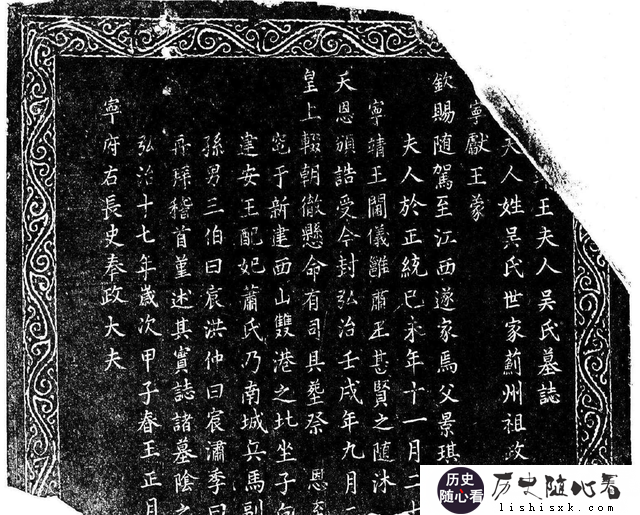 王夫人吳氏墓誌
夫人姓吳氏世家薊州祖政
寧獻王蒙
欽賜随駕至江西遂家焉父景琪
夫人於正統已未年十一月二十
寧靖王閫儀雝肅王甚賢之随沐
天恩頒誥受令封弘治壬戌年九月
皇上輟朝徹懸命有司具塟祭 恩至
窆于新建西山雙港之北坐子向
建安王配妃蕭氏乃南城兵馬副
孫男三伯曰宸洪仲曰宸潚季曰
稽首堇述其實誌諸墓陰之
弘治十七年歲次甲子春王正月
寧府右長史奉政大夫
历史
随心看
历史随心看
lishisxk.com